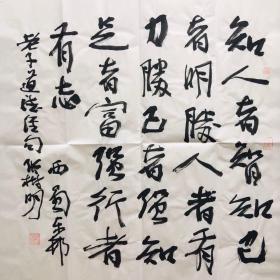 知人者智知己
者明勝人者有
力勝己者强知
足者富强行者
有志
老子道德经句